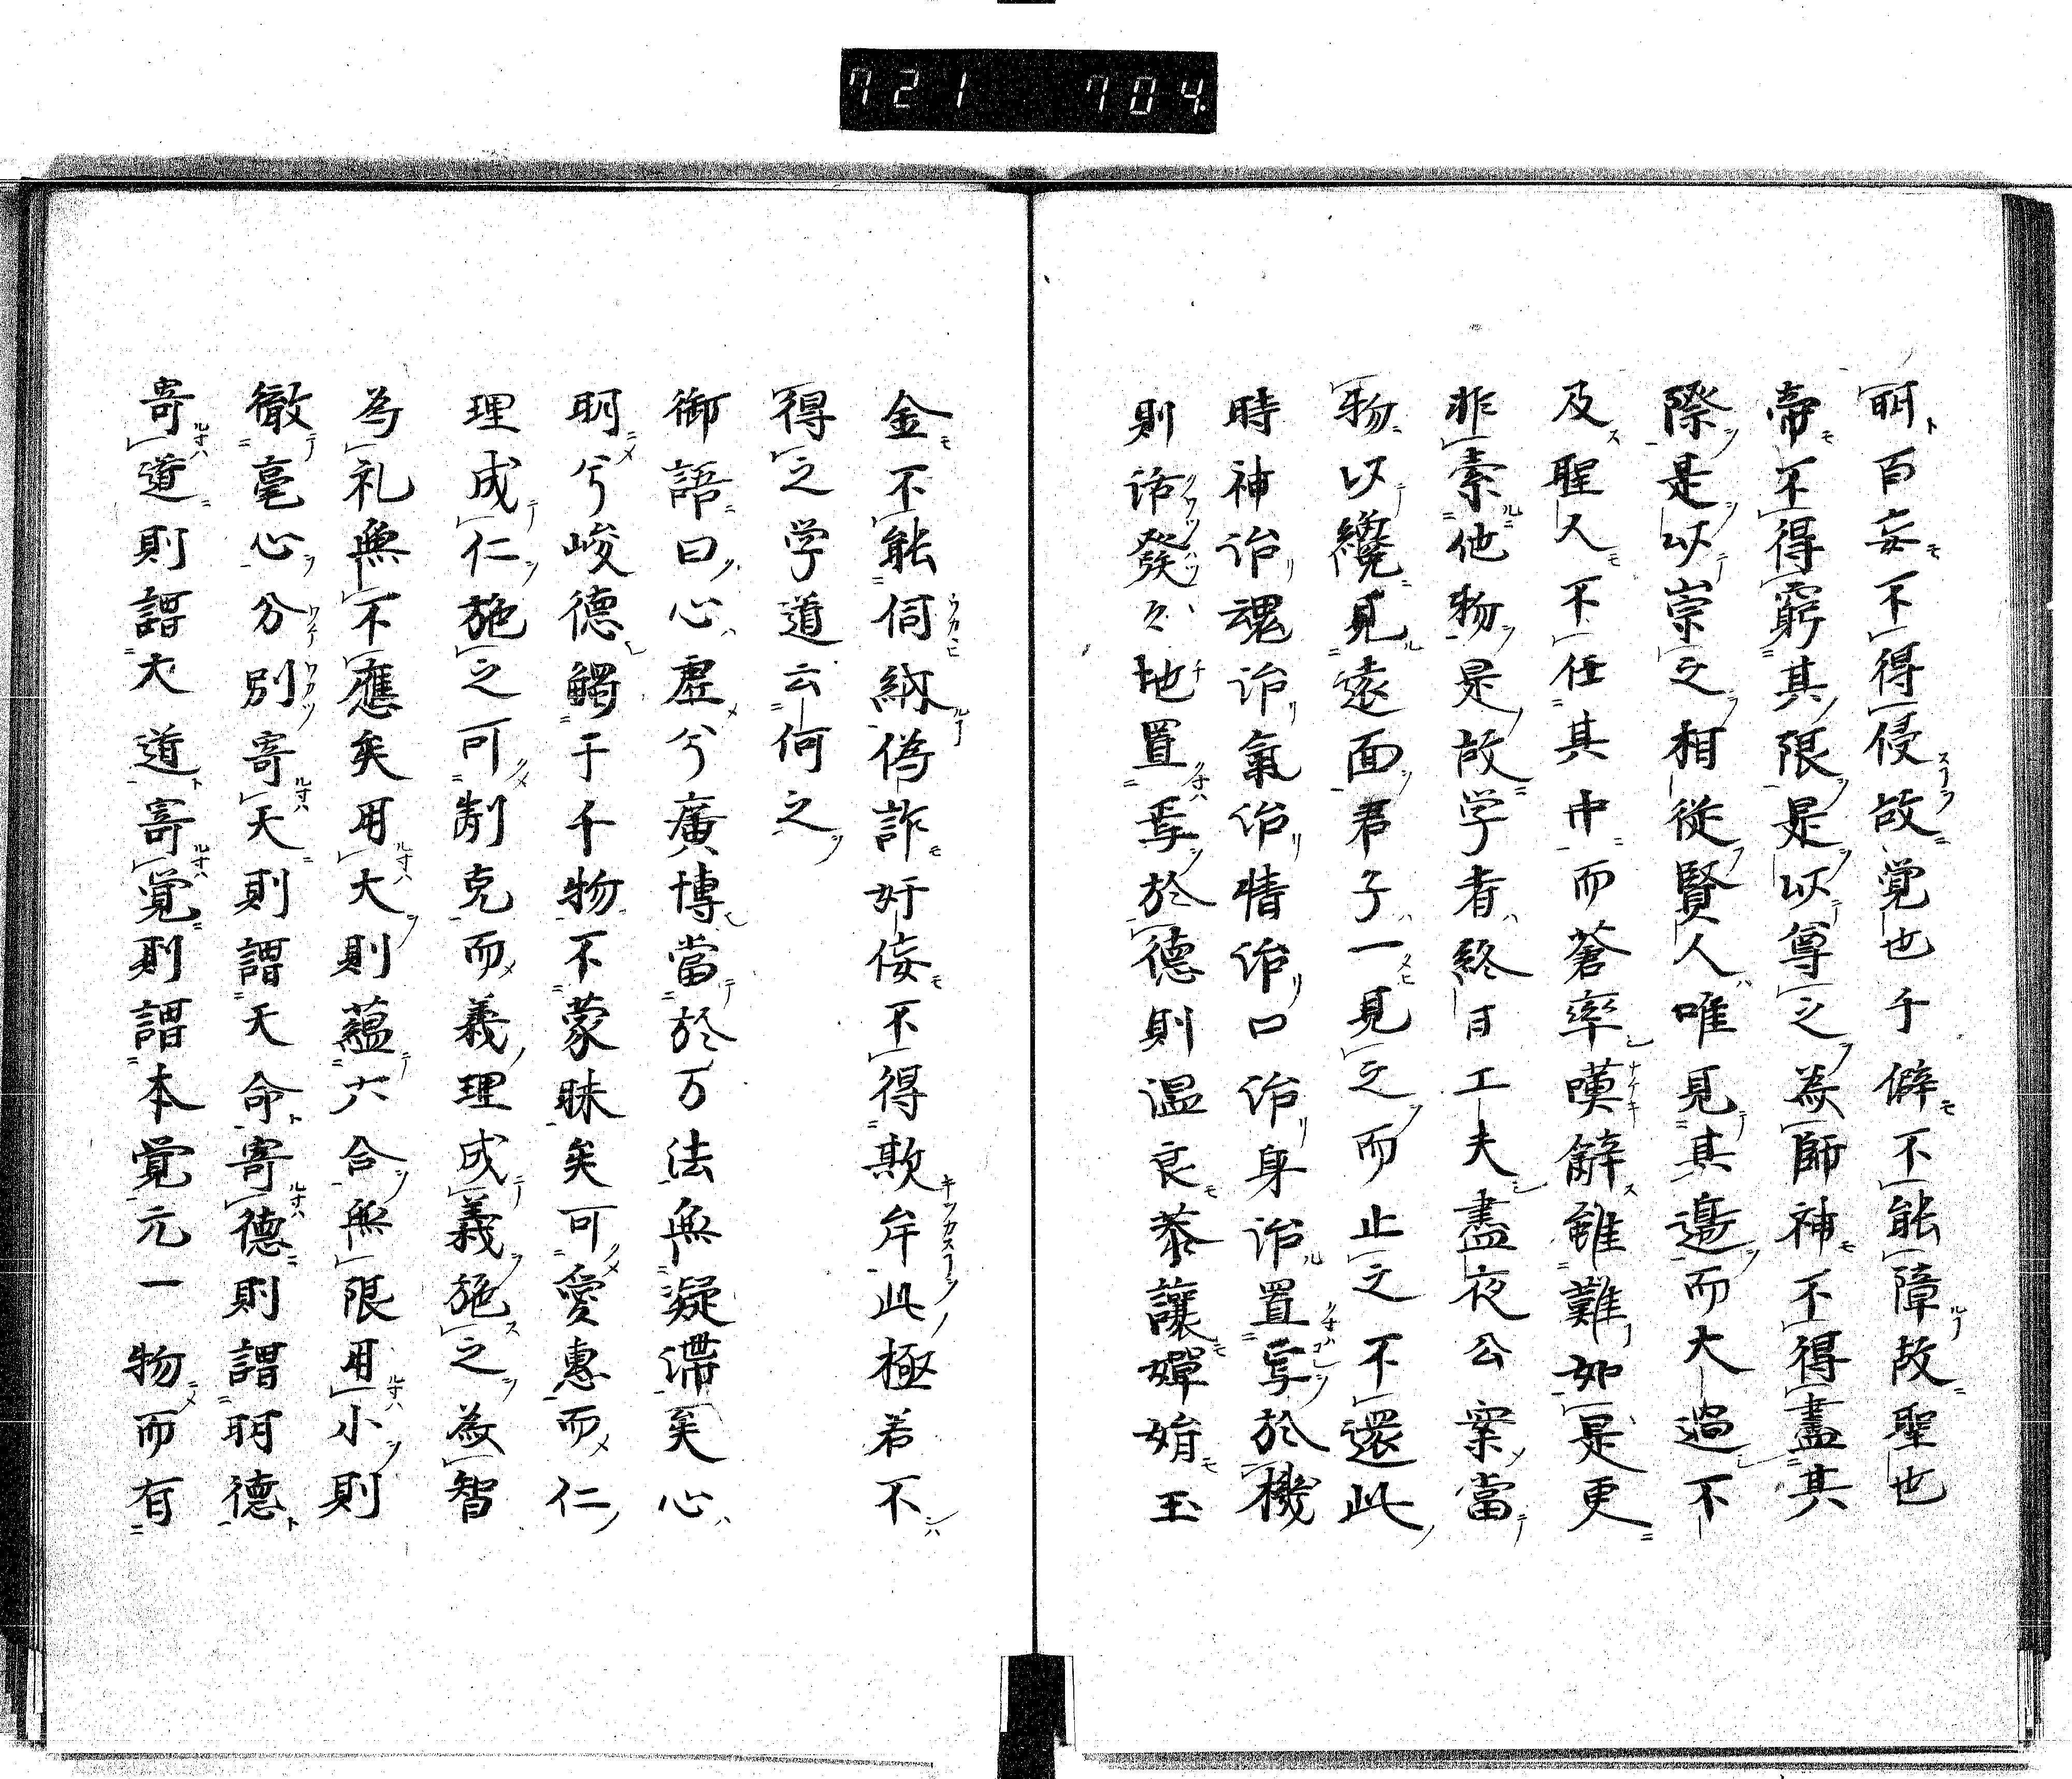 721 704
明百妄不得侵故覚也千僻不能障故聖也
帝不得窮其限是以尊之為師神不得盡其
際是以崇之相従賢人唯見其邉而大過不
及聖人不任其中而蒼率嘆辭雖難如是更
非索他物是故学者終日工夫盡夜公案當
物以纔見遠面君子一見之而止之不還此
時神治魂治氣治情治口治身治置焉於機
則活發々地置焉於德則温良恭讓嬋娟玉
金不能伺納偽詐奸侫不得欺牟此極若不
得之学道云何之
御語曰心虚兮廣博當於万法無凝滯矣心
明兮峻德觸于千物不蒙昧矣可愛惠而仁
理成仁施之可制克而義理成義施之為智
為礼無不應矣用大則蘊六合無限用小則
徹毫心分別寄天則謂天命寄德則謂明德
寄道則謂大道寄覚則謂本覚元一物而有